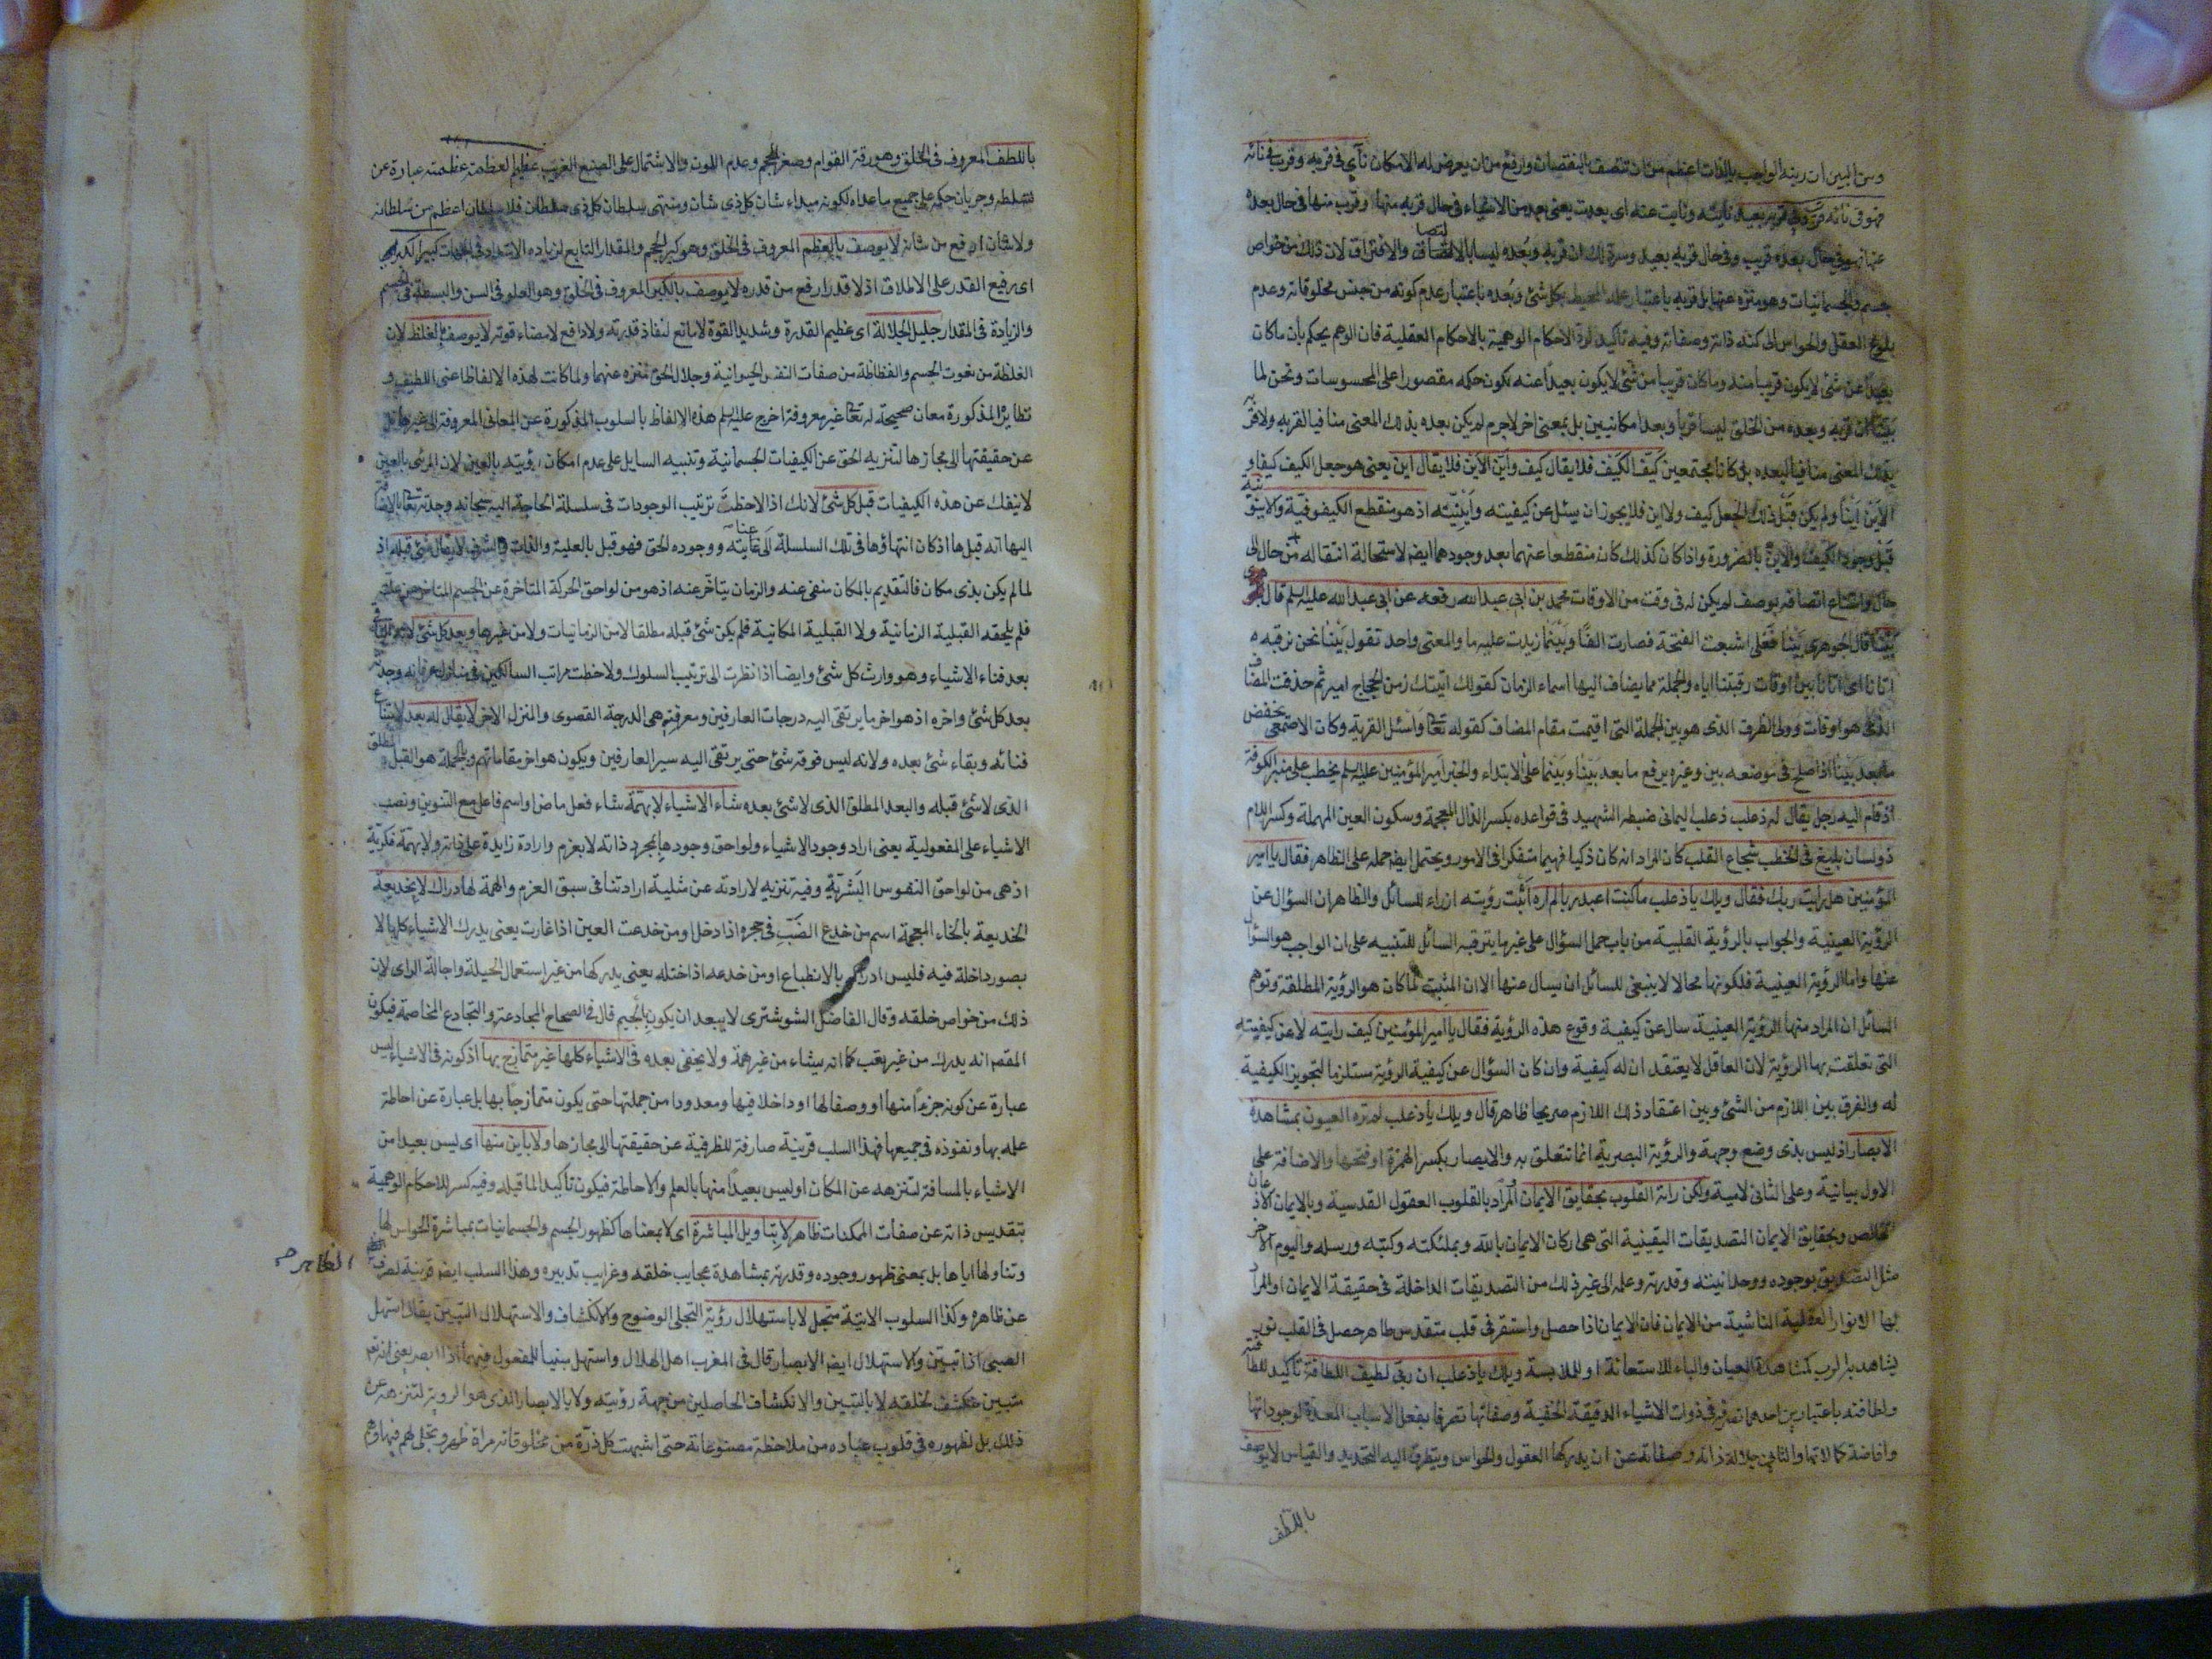 ومن البين ان رتبة الواجب بالذات اعظم من ان تتصف بالنقصان وارفع من ان يعرض له الامكان نآى فى قربه وقرب فى نائه
فهو فى نائه قريب وفى قربه بعيد نائيته ونايت عنه اى بعدت يعنى بعد من الاشياء فى حال قربه منها وقرب منها فى حال بعده
عنها فهو فى حال بعده قريب وفى حال قربه بعيد وسر ذلك ان قربه وبعده ليسا بالالتصاق والافتراق لان ذلك من خواص
جسم والجسمانيات وهو منزه عنها بل قربه باعتبار علمه المحيط بكل شئ وبعده باعتبار عدم كونه من جنس مخلوقاته وعدم
بلوغ العقل والحواس الى كنه ذاته وصفاته وفيه تأكيد لرد الاحكام الوهمية بالاحكام العقلية فان الوهم يحكم بأن ما كان
بعيدا عن شئ لا يكون قريبا منه وما كان قريبا من شئ لا يكون بعيدا عنه لكون حكمه مقصورا على المحسوسات ونحن لما
بيّنّا ان قربه وبعده من الخلق ليسا قربا وبعدا مكانيين بل بمعنى اخر لاجرم لم يكن بعده بذلك المعنى منافيا لقربه ولا قربه
بذلك المعنى منافيا لبعده بل كانا مجتمعين كيّف الكيف فلا يقال كيف وأيّن الاين فلا يقال اين يعنى هو جعل الكيف كيفا و
الاين اينا ولم يكن قبل ذلك الجعل كيف ولا اين فلا يجوز ان يسئل عن كيفيته وأينيته اذ هو منقطع الكيفوفية والاينونية
قبل وجود الكيف والاين بالضرورة واذا كان كذلك كان منقطعا عنهما بعد وجودهما ايضا لاستحالة انتقاله من حال الى
حال وامتناع اتصافه بوصف لم يكن له فى وقت من الاوقات محمد بن ابى عبدالله رفعه عن ابى عبدالله عليه السلم قال
بينا قال الجوهرى بينا فعلى اشبعت الفتحة فصارت الفا وبينما زيدت عليه ما والمعنى واحد تقول بينا نحن نرقبه
اتانا اى اتانا بين اوقات رقبتنا اياه والجملة مما يضاف اليها اسماء الزمان كقولك اتيتك زمن الحجاج امير ثم حذفت المضاف
الذى هو اوقات وولى الظرف الذى هو بين الجملة التى اقيمت مقام المضاف كقوله تعا واسئل القرية وكان الاصمعى يخفض
ما بعد بينا اذا صلح فى موضعه بين وغيره يرفع ما بعد بينا وبينما على الابتداء والخبر امير المؤمنين عليه السلم يخطب على منبر الكوفة
اذ قام اليه رجل يقال له ذعلب ذعلب اليمانى ضبطه الشهيد فى قواعده بكسر الذال المعجمة وسكون العين المهملة وكسر اللام
ذو لسان بليغ فى الخطب شجاع القلب كان المراد انه كان ذكيا فهيما متفكرا فى الامور ويحتمل ايضا حمله على الظاهر فقال يا امير
المؤمنين هل رايت ربك فقال ويلك يا ذعلب ما كنت اعبد ربا لم اره أثبت رؤيته ازراء للسائل والظاهر ان السؤال عن
الرؤية العينية والجواب بالرؤية القلبية من باب حمل السؤال على غير ما يترقبه السائل للتنبيه على ان الواجب هو السؤال
عنها واما الرؤية العينية فلكونها محالا لا ينبغى للسائل ان يسال عنها الا ان المثبت لما كان هو الرؤية المطلقة وتوهم
السائل ان المراد منها الرؤية العينية سال عن كيفية وقوع هذه الرؤية فقال يا امير المؤمنين كيف رايته لا عن كيفيته
التى تعلقت بها الرؤية لان العاقل لا يعتقد ان له كيفية وان كان السؤال عن كيفية الرؤية مستلزما لتجويز الكيفية
له والفرق بين اللازم من الشئ وبين اعتقاد ذلك اللازم صريحا ظاهر قال ويلك يا ذعلب لم تره العيون بمشاهدة
الابصار اذ ليس بذى وضع وجهة والرؤية البصرية انما تتعلق به والابصار بكسر الهمزة او فتحها والاضافة على
الاول بيانية وعلى الثانى لامية ولكن راته القلوب بحقايق الايمان المراد بالقلوب العقول القدسية وبالايمان الاذعان
الخالص وبحقايق الايمان التصديقات اليقينية التى هى اركان الايمان بالله وبملئكته وكتبه ورسله واليوم الاخر
مثل التصديق بوجوده ووحدانيته وقدرته وعلمه الى غير ذلك من التصديقات الداخلة فى حقيقة الايمان او المراد
بها الانوار العقلية الناشية من الايمان فان الايمان اذا حصل واستقر فى قلب متقدس طاهر حصل فى القلب نور
يشاهد به الرب كمشاهدة العيان والباء للاستعانة او للملابسة ويلك يا ذعلب ان ربى لطيف اللطافة تاكيد للطافته
ولطافته باعتبارين احدهما تصرفه فى ذوات الاشياء الدقيقة الخفية وصفاتها تصرفا بفعل الاسباب المعدة لوجوداتها
وافاضة كمالاتها والثانى جلالة ذاته وصفاته عن ان يدركها العقول والحواس ويتطرق اليه التحديد والقياس لا يوصف
باللطف
باللطف المعروف فى الخلق وهو رقة القوام وصغر الحجم وعدم اللون والاشتمال على الصنع الغريب عظيم العظمة عظمته عبارة عن
تسلطه وجريان حكمه على جميع ما عداه لكونه مبداء شان كل ذى شان ومنتهى سلطان كل ذى سلطان فلا سلطان اعظم من سلطانه
ولا شان ارفع من شانه لا يوصف بالعظم المعروف فى الخلق وهو كبر الحجم والمقدار التابع لزيادة الامتداد فى الجهات كبير الكبرياء
اى رفيع القدر على الاطلاق اذ لا قدر ارفع من قدره لا يوصف بالكبر المعروف فى الخلق وهو العلو فى السن والبسطة فى الجسم
والزيادة فى المقدار جليل الجلالة اى عظيم القدرة وشديد القوة لا مانع لنفاذ قدرته ولا دافع لامضاء قوته لا يوصف بالغلظ لان
الغلظة من نعوت الجسم والفظاظة من صفات النفس الحيوانية وجلال الحق منزه عنهما ولما كانت لهذه الالفاظ اعنى اللطيف و
نظايره المذكورة معان صحيحة له تعا غير معروفة اخرج عليه السلم هذه الالفاظ بالسلوب المذكورة عن المعانى المعروفة الى غيرها
عن حقيقتها الى مجازها لتنزيه الحق عن الكيفيات الجسمانية وتنبيه السايل على عدم امكان رؤيته بالعين لان المرئى بالعين
لا ينفك عن هذه الكيفيات قبل كل شئ لانك اذا لاحظت ترتيب الوجودات فى سلسلة الحاجة اليه سبحانه وجدته تعا بالاضافة
اليها انه قبلها اذ كان انتهاؤها فى تلك السلسلة الى عنايته ووجوده الحق فهو قبل بالعلية والذات والشرف لا يقال شئ قبله اذ
لما لم يكن بذى مكان فالتقديم بالمكان منفى عنه والزمان يتاخر عنه اذ هو من لواحق الحركة المتاخرة عن الجسم المتاخر عن علته
فلم يلحقه القبلية الزمانية ولا القبلية المكانية فلم يكن شئ قبله مطلقا لا من الزمانيات ولا من غيرها وبعد كل شئ
بعد فناء الاشياء وهو وارث كل شئ وايضا اذا نظرت الى ترتيب السلوك ولاحظت مراتب السالكين فى منازل عرفانه وجدته
بعد كل شئ واخره اذ هو اخر ما يرتقى اليه درجات العارفين ومعرفته هى الدرجة القصوى والمنزل الاخر لا يقال له بعد لامتناع
فنائه وبقاء شئ بعده ولانه ليس فوقه شئ حتى يرتقى اليه سير العارفين ويكون هو اخر مقاماتهم وبالجملة هو القبل المطلق
الذى لا شئ قبله والبعد المطلق الذى لا شئ بعده شاء الاشياء لا بهمة شاء فعل ماض او اسم فاعل مع التنوين ونصب
الاشياء على المفعولية يعنى اراد وجود الاشياء ولواحق وجودها بمجرد ذاته لا بعزم وارادة زايدة على ذاته ولا بهمة فكرية
اذ هى من لواحق النفوس البشرية وفيه تنزيه لارادته عن مثلية ارادتنا فى سبق العزم والهمة لها دراك لا بخديعة
الخديعة بالخاء المعجمة اسم من خدع الضب فى جحره اذا دخل او من خدعت العين اذا غارت يعنى يدرك الاشياء كلها لا
بصور داخلة فيه فليس ادراكه بالانطباع او من خدعه اذا ختله يعنى يدركها من غير استعمال الحيلة واجالة الراى لان
ذلك من خواص خلقه وقال الفاضل الشوشترى لا يبعد ان يكون بالجيم قال فى الصحاح المجادعة والتجادع المخاصمة فيكون
المقصد انه يدرك من غير تعب كما انه يشاء من غير همة ولا يخفى بعده فى الاشياء كلها غير متمازج بها اذ كونه فى الاشياء ليس
عبارة عن كونه جزءا منها او وصفا لها او داخلا فيها ومعدودا من جملتها حتى يكون متمازجا بها بل عبارة عن احاطة
علمه بها ونفوذه فى جميعها فهذا السلب قرينة صارفة للظرفية عن حقيقتها الى مجازها ولا باين منها اى ليس بعيدا من
الاشياء بالمسافة لتنزهه عن المكان او ليس بعيدا منها بالعلم والاحاطة فيكون تأكيدا لما قبله وفيه كسر للاحكام الوهمية
بتقديس ذاته عن صفات الممكنات ظاهر لا بتاويل المباشرة اى لا بمعناها كظهور الجسم والجسمانيات بمباشرة الحواس لها
وتناولها اياها بل بمعنى ظهور وجوده وقدرته بمشاهدة عجايب خلقه وغرايب تدبيره وهذا السلب ايضا قرينة لصرف
الظاهر
عن ظاهره وكذا السلوب الاتية متجل لا باستهلال رؤية التجلى الوضوح والانكشاف والاستهلال التبين يقال استهل
الصبى اذا تبين والاستهلال ايضا الابصار قال فى المغرب اهل الهلال واستهل مبنيا للمفعول فيهما اذا ابصر يعنى انه تعا
متبين منكشف لخلقه لا بالتبين والانكشاف الحاصلين من جهة رؤيته ولا بالابصار الذى هو الروية لتنزهه عن
ذلك بل لظهوره فى قلوب عباده من ملاحظة مصنوعاته حتى اشبهت كل ذرة من مخلوقاته مراة ظهر وتجلى لهم فيها وهم